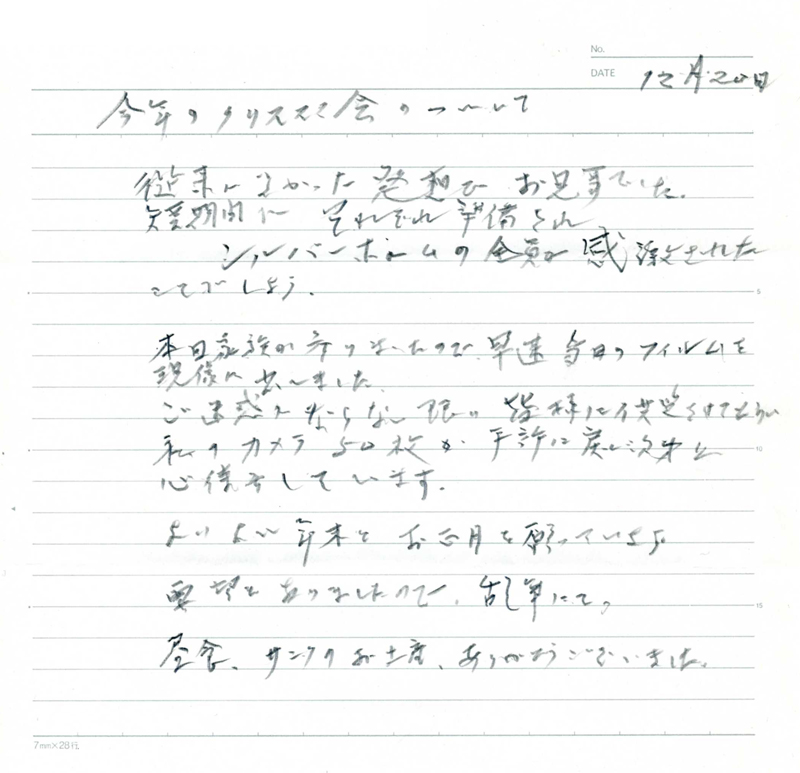 No.
DATE 12月20日
今年のクリスマス会について
従来になかった発想で お見事でした。
短期間に それぞれ準備され
シルバーホームの全員が感激された
ことでしょう。
本日家族が寄りましたので早速当日のフィルムを
現像に出しました
ご迷惑にならない限り 皆様に
私のカメラ50枚が 手許に戻り次第と
心待ちしています。
よりよい年末と お正月を願っています
要望もありましたので、乱筆にて。
昼食、サンタのお土産、ありがとうございました。
5
10
15
7mm×28行